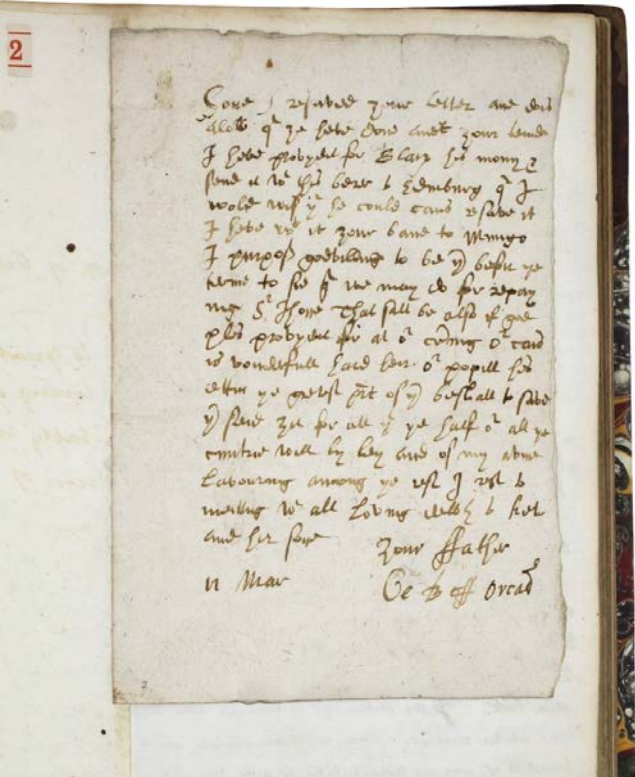 2
Sone I resaved zour letter and dois
alow qt ye have done anet zour teinde
I have provydit for Blair his mony &
send it wt this berer to Edinburg qr I
wold wis yt he could caus resave it
I have wt it zour band to Mungo
I purpos godwilling to be yr befor ye
terme to sie qt we may do for repay
ing Sr Jhone That sall be also if god
ples provydit for at or cuming or cais
is wonderfull hard heir or popill hes
ettin ye gretest prt of yr bestiall to save
yr seid zit for all yt ye half of all ye
cuntrie will ly ley and of my awne
Labouring among ye rest I rest to
meiting wt all Loving to ket
and hir sone
zour ffather
11 Mar
Ge B off Orcad
2